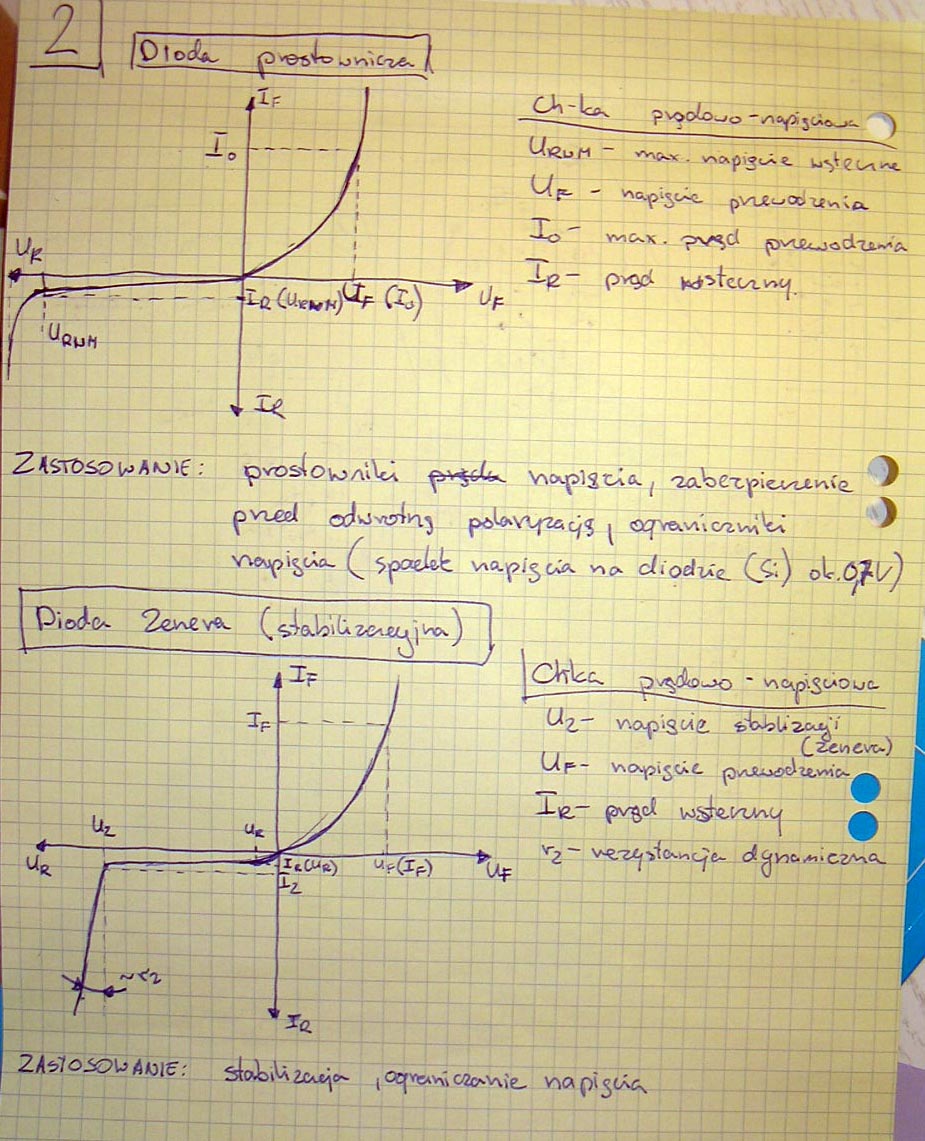 2
Dioda prostownicza
I_F
I_0
U_R
U_RWM
I_R (U_RWM)
U_F (I_0)
U_F
I_R
Ch-ka prądowo-napięciowa
U_RWM – max. napięcie wsteczne
U_F – napięcie przewodzenia
I_0 – max. prąd przewodzenia
I_R – prąd wsteczny.
ZASTOSOWANIE: prostowniki napięcia, zabezpieczenie
przed odwrotną polaryzacją, ograniczniki
napięcia (spadek napięcia na diodzie (Si) ok. 0,7V)
Dioda Zenera (stabilizacyjna)
I_F
I_F
U_Z
U_R
U_R
I_R(U_R)
I_Z
U_F(I_F)
U_F
~r_z
I_R
Ch-ka prądowo-napięciowa
U_Z – napięcie stablizacji
(Zenera)
U_F – napięcie przewodzenia
I_R – prąd wsteczny
r_z – rezystancja dynamiczna
ZASTOSOWANIE: stabilizacja, ograniczanie napięcia